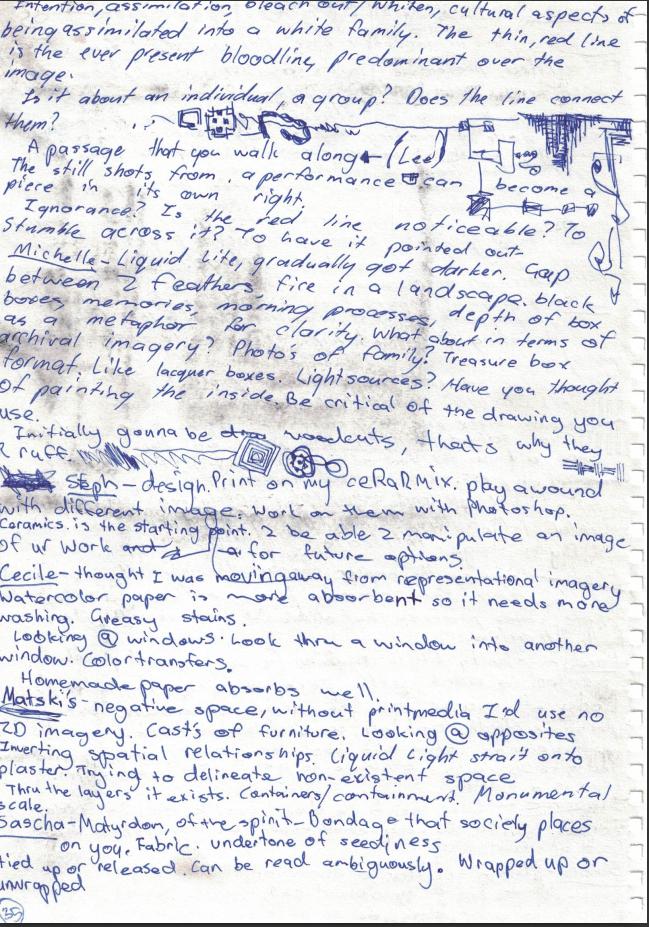 Intention, assimilation, bleach out/whiten, cultural aspects of
being assimilated into a white family. The thin, red line
is the ever present bloodline predominant over the
image.
Is it about an individual, a group? Does the line connect
them?
A passage that you walk along (Lee)
The still shots from a performance can become a
piece in its own right.
Ignorance? Is the red line noticeable? To
Stumble across it? To have it pointed out-
Michelle-Liquid Lite, gradually got darker. Gap
between 2 feathers fire in a landscape. black
boxes, memories, morning processes, depth of box
as a metaphor for clarity. What about in terms of
archival imagery? Photos of family? Treasure box
format. Like lacquer boxes. Lightsources? Have you thought
of painting the inside. Be critical of the drawing you
use.
Initially gonna be woodcuts, thats why they
R ruff.
Steph-design. Print on my ceRaRMIX. play awound
with different image. work on them with Photoshop.
Ceramics. is the starting point. 2 be able 2 manipulate an image
of ur work for future options.
Cecile-thought I was moving away from representational imagery
Watercolor paper is more absorbent so it needs more
washing. Greasy stains.
Looking @ windows. Look thru a window into another
window. Color transfers.
Homemade paper absorbs well.
Matski's-negative space, without printmedia I'd use no
2D imagery. Casts of furniture. Looking @ opposites
Inverting spatial relationships. Liquid Light strait onto
plaster. Trying to delineate non-existent space
Thru the layers it exists. Containers/containment. Monumental
scale.
Sascha-Matyrdom, of the spirit-Bondage that society places
on you. Fabric. undertone of seediness
tied up or released. Can be read ambiguously. Wrapped up or
unwrapped
35